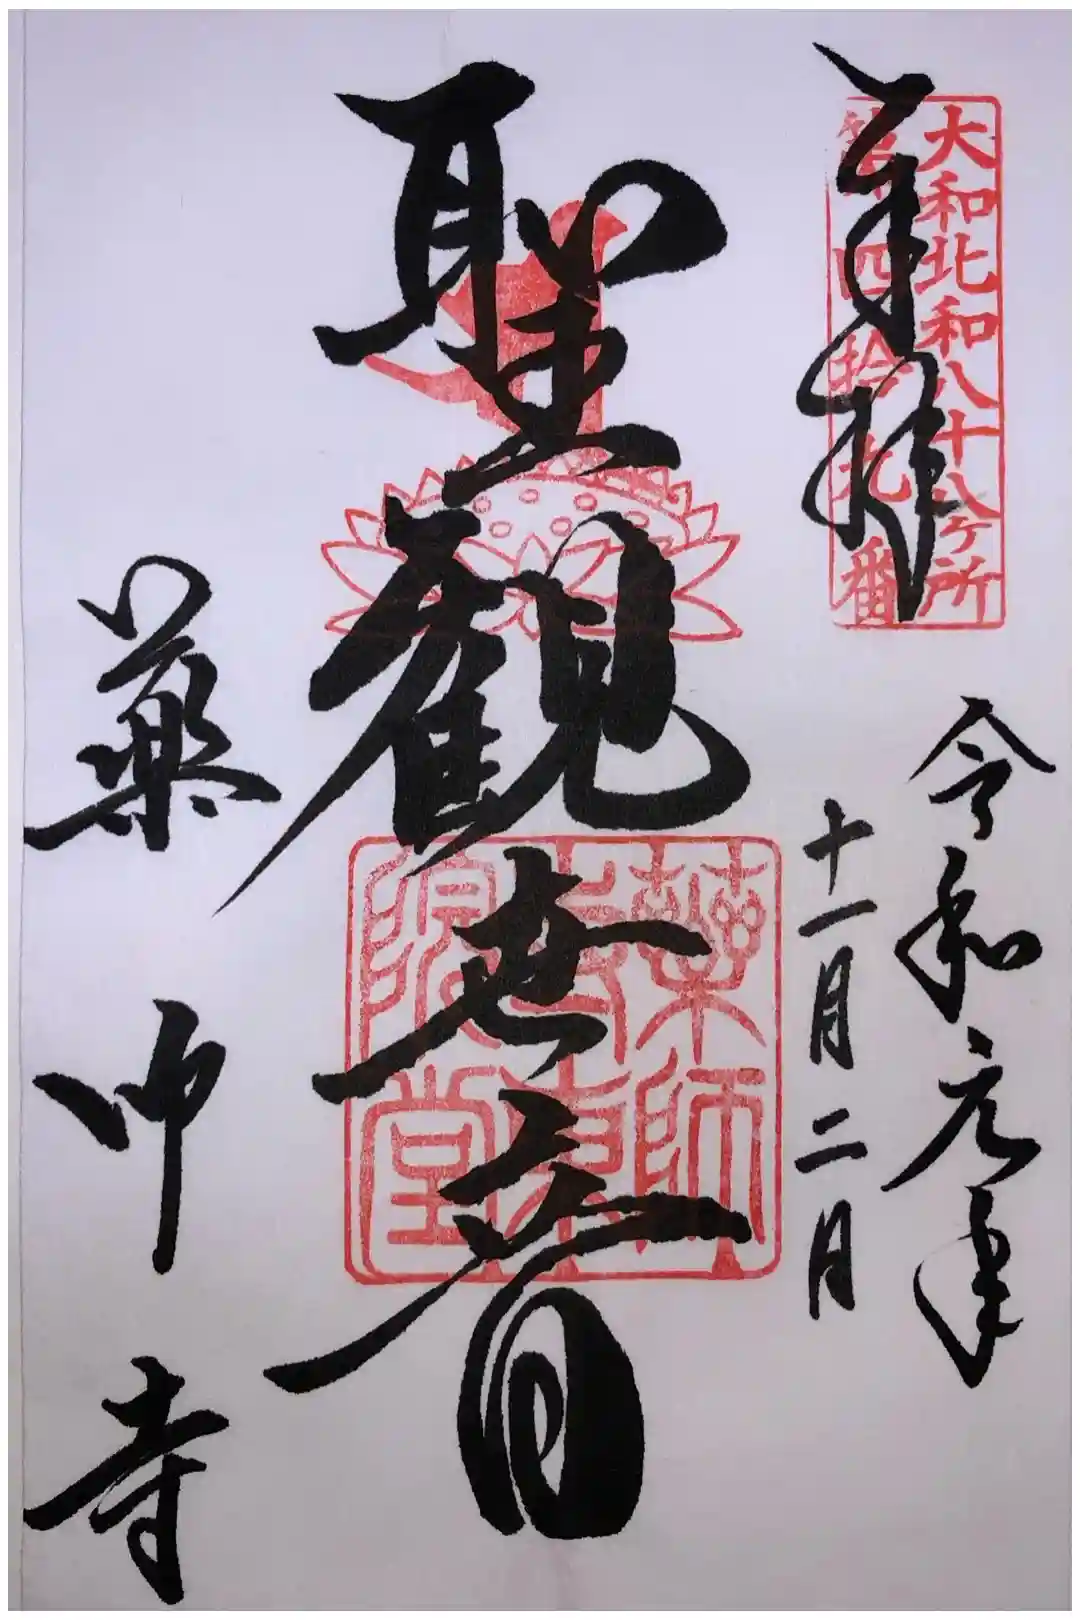 大和北和八十八ヶ所
第四拾九番
奉拝
令和元年
十一月二日
聖観世音
藥師
寺東
院堂
薬師寺